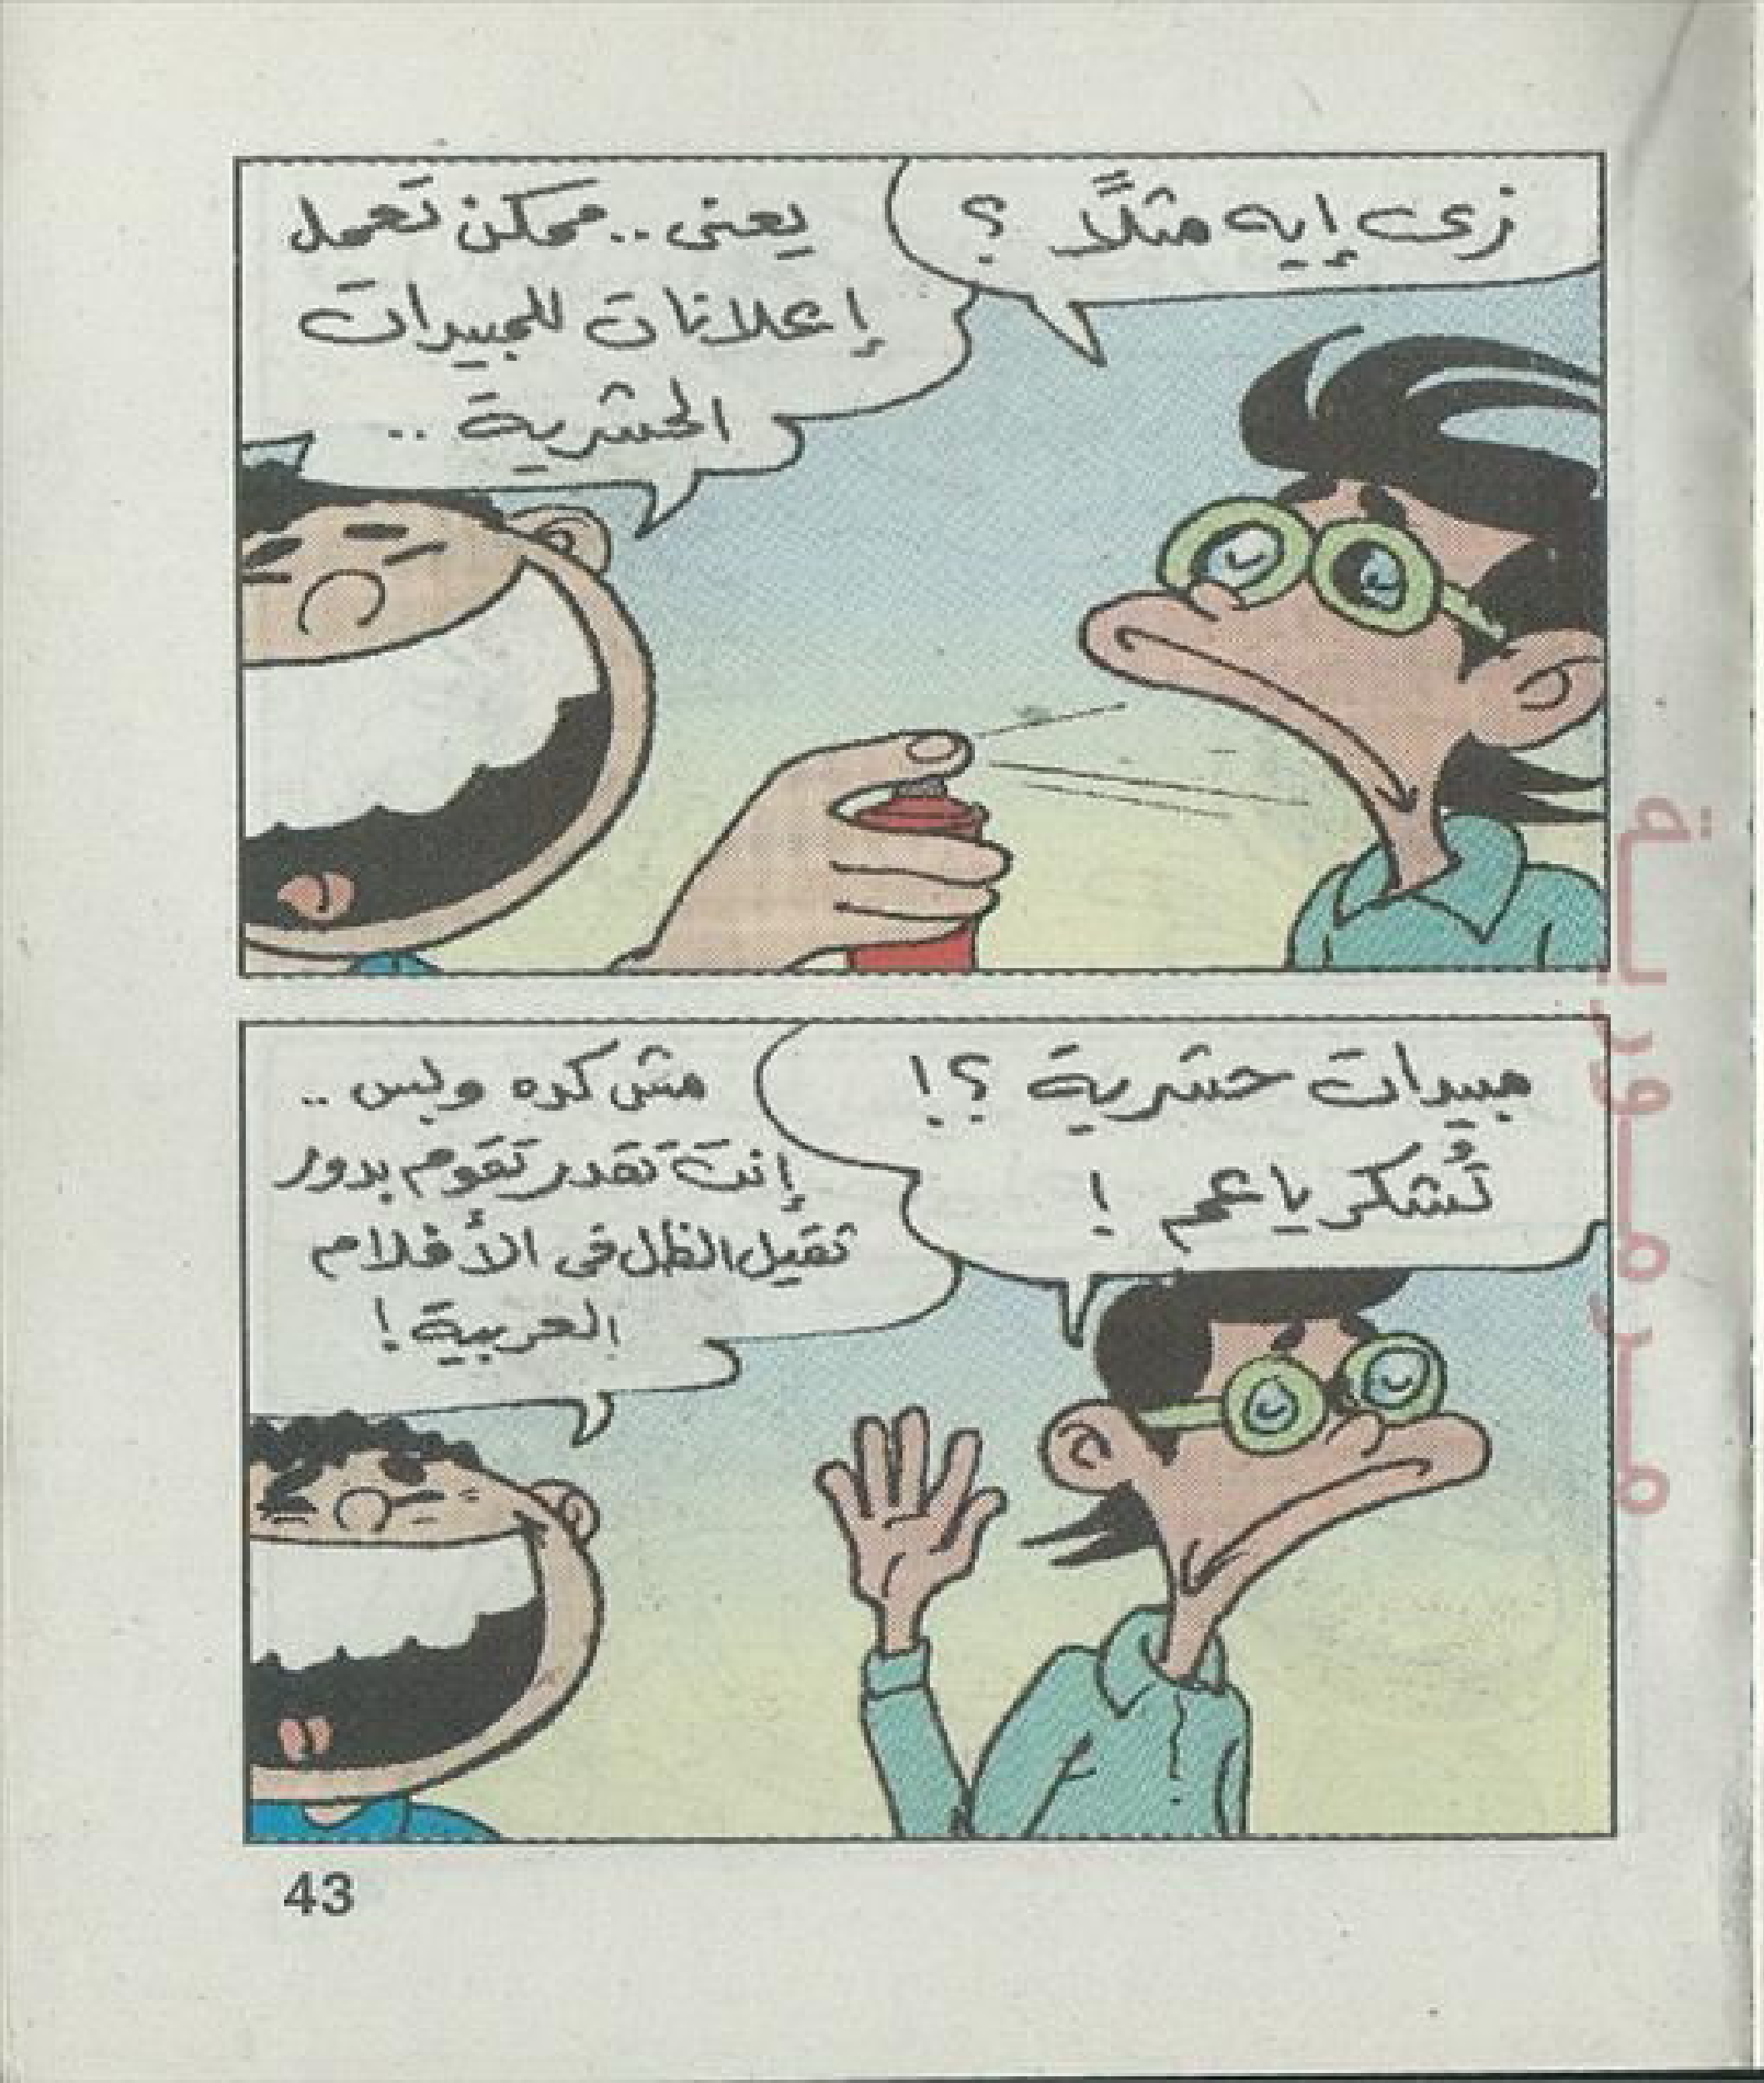 زى إيه مثلًا ؟
يعنى .. ممكن تَعمل
إعلانات للمبيدات
الحشرية ..
مبيدات حشرية ؟!
تُشكر يا عم !
مش كده وبس ..
إنتَ تقدر تقوم بدور
ثقيل الظل فى الأفلام
العربية !
43